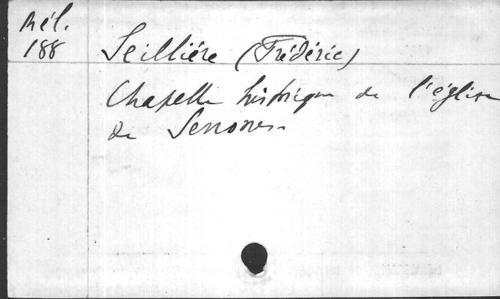 Mél.
188
Seillière (Frédéric)
Chapelle historique de l'église
de Senones.